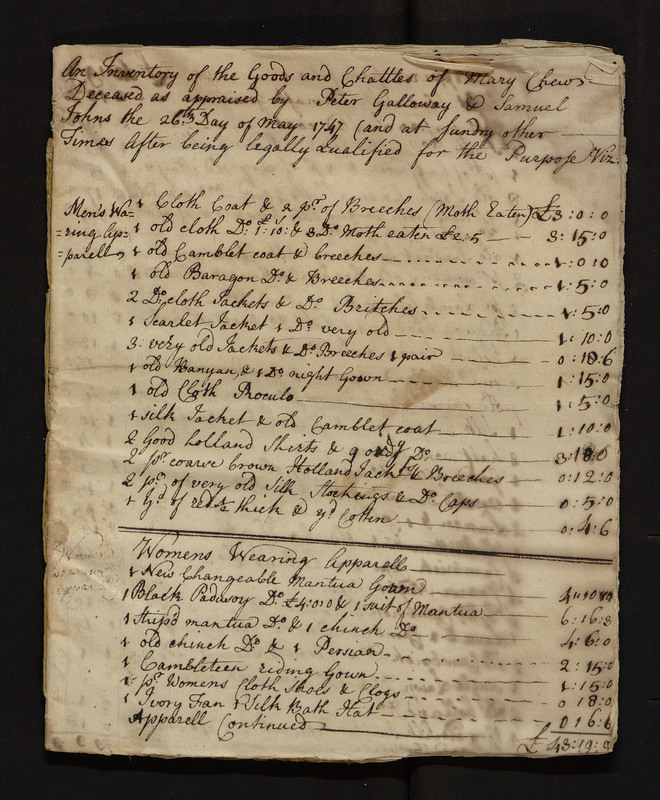 An Inventory of the Goods and Chattles of Mary Chew
Deceased as appraised by Peter Galloway & Samuel
Johns the 26th Day of May 1747 (and at sundry other
Times After being legally Qualified for the Purpose Viz.
Men's Wa=
=ring Ap=
=parell
1 Cloth Coat & 2 pr. of Breeches (Moth Eaten) £3:0:0
1 old cloth Do. 1:10: & 3 Do. Moth eaten £2:5 3:15:0
1 old Camblet coat & breeches 1:0:10
1 old Baragon Do. & Breeches 1:5:0
2 Do. cloth Jackets & Do. Britches 1:5:0
1 Scarlet Jacket 1 Do. very old 1:10:0
3 very old Jackets & Do. Breeches 1 pair 0:18:6
1 old Banyan, & 1 Do. night Gown 1:15:0
1 old Cloth Roculo 1:5:0
1 silk Jacket & old Camblet coat 1:10:0
2 Good holland Shirts & 9 Do. 3:18:0
2 pr. coarse brown Holland Jackts & Breeches 0:12:0
2 pr. of very old Silk Stockings & Do. Caps 0:5:0
1 yd. of red thick & yd Cotten 0:4:6
Womens Wearing Apparell
1 New Changeable Mantua Gown
1 Black Padusoy Do. £4:0:0 & 1 suit of Mantua 6:16:3
1 strip'd mantua Do. & 1 chinch Do. 4:6:0
1 old chinch Do. & 1 Persian 2:15:0
1 Cambleteen riding Gown 1:15:0
1 pr. Womens Cloth Shoes & Clogs 0 18:0
1 Ivory Fan 1 Silk Bath Hat 0 16:6
Apparell Continued
£ 43:19:9